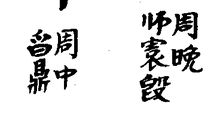 周晚
师寰𣪘
周中
曶鼎